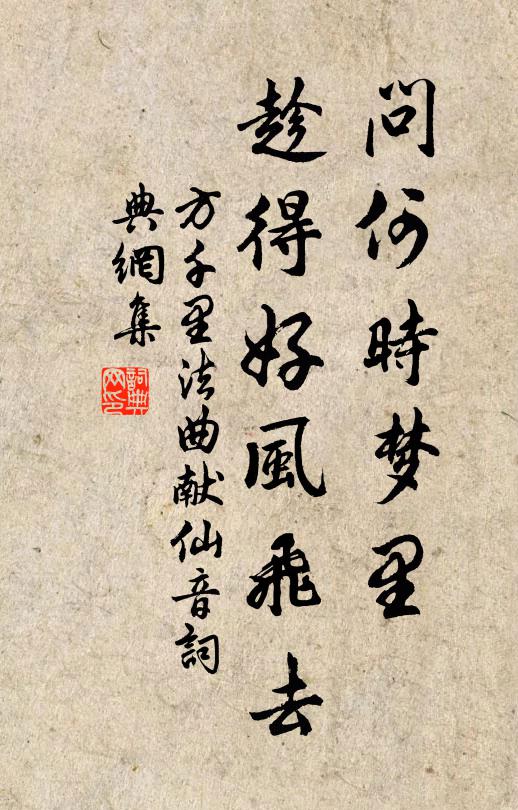 問何時梦里
趁得好風飛去
方千里法曲献仙音詞
典網集
詞典
网印